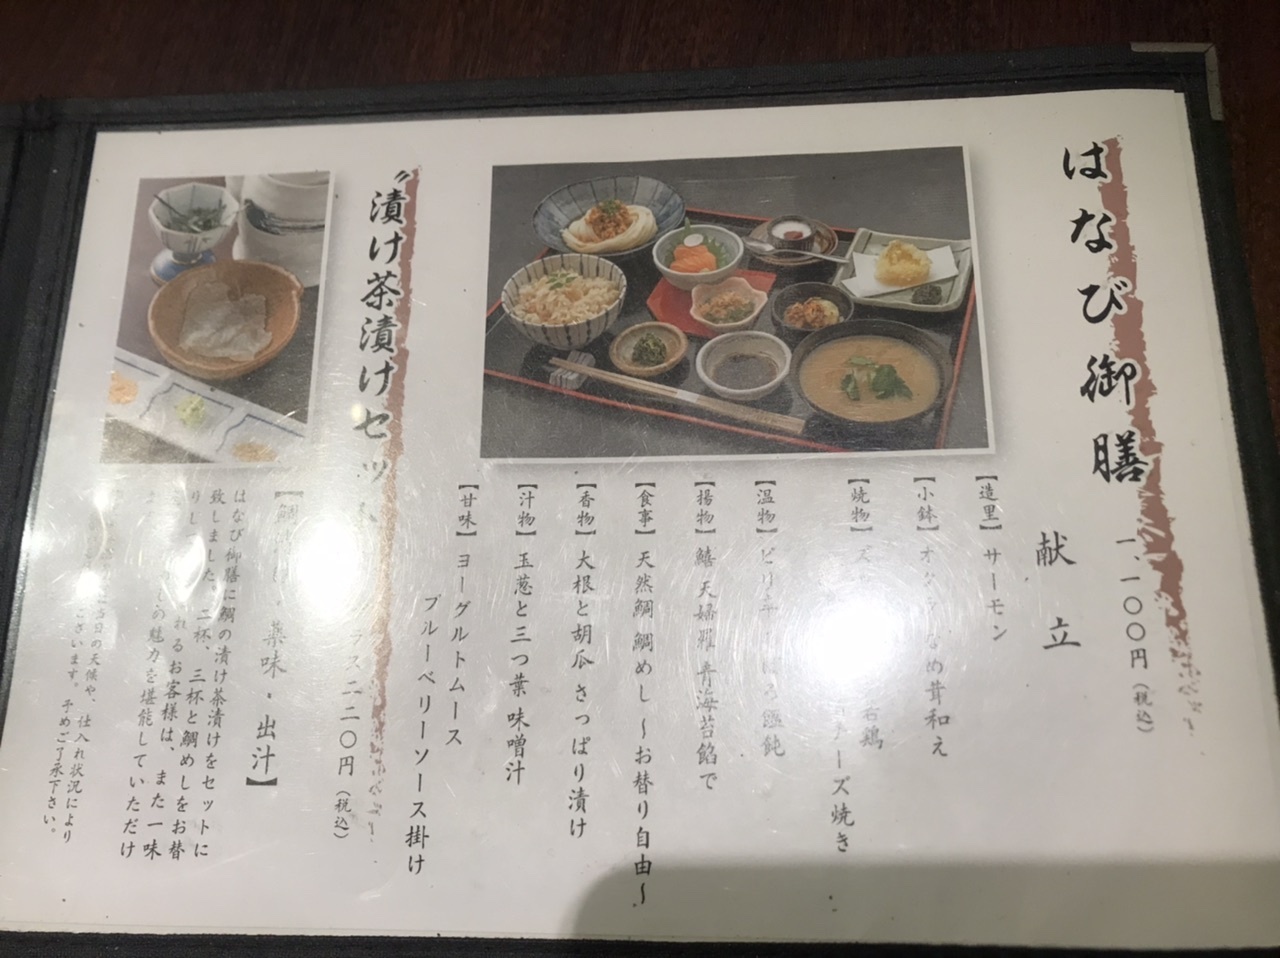 はなび御膳
一、一〇〇円（税込）
献立
【造里】 サーモン
【小鉢】 オクラ なめ茸和え
【焼物】
若鶏
ーズ焼き
【温物】 ピリ辛 饂飩
【揚物】 鱚 天婦羅 青海苔餡で
【食事】 天然鯛 鯛めし 〜お替り自由〜
【香物】 大根と胡瓜 さっぱり漬け
【汁物】 玉葱と三つ葉 味噌汁
【甘味】 ヨーグルトムース
ブルーベリーソース掛け
漬け茶漬けセット
ラス二二〇円（税込）
・薬味・出汁】
はなび御膳に鯛の漬け茶漬けをセットに
致しました。二杯、三杯と鯛めしをお替
りし れるお客様は、また一味
しの魅力を堪能していただけ
当日の天候や、仕入れ状況により
ございます。予めご了承下さい。